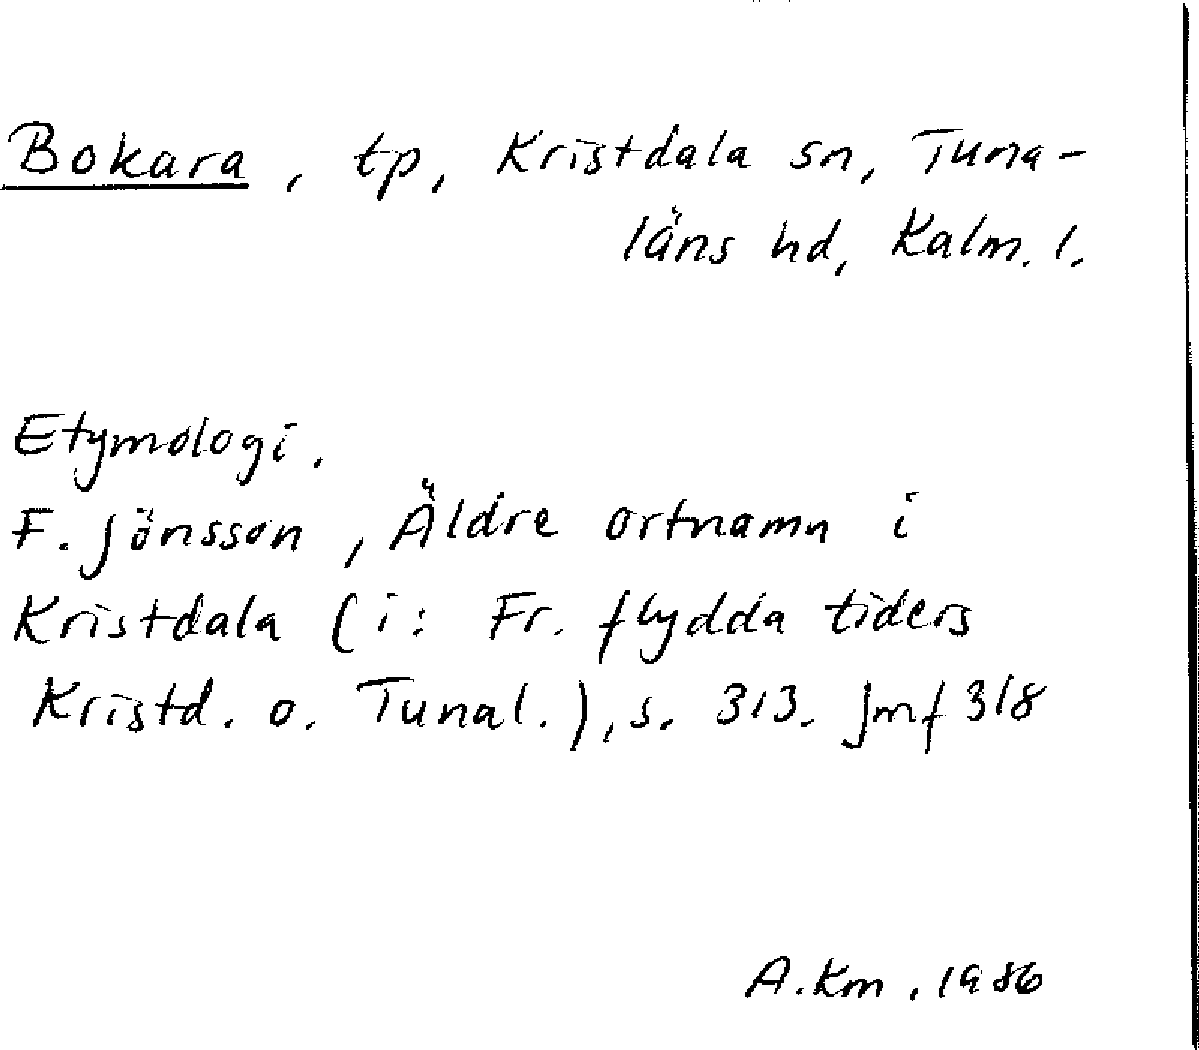 Bokara, tp, Kristdala sn, Tuna-
läns hd, Kalm. l.
Etymologi.
F. Jönsson, Äldre ortnamn i
Kristdala (i: Fr. flydda tiders
Kristd. o. Tunal.), s. 313. Jmf 318
A. Km. 1986